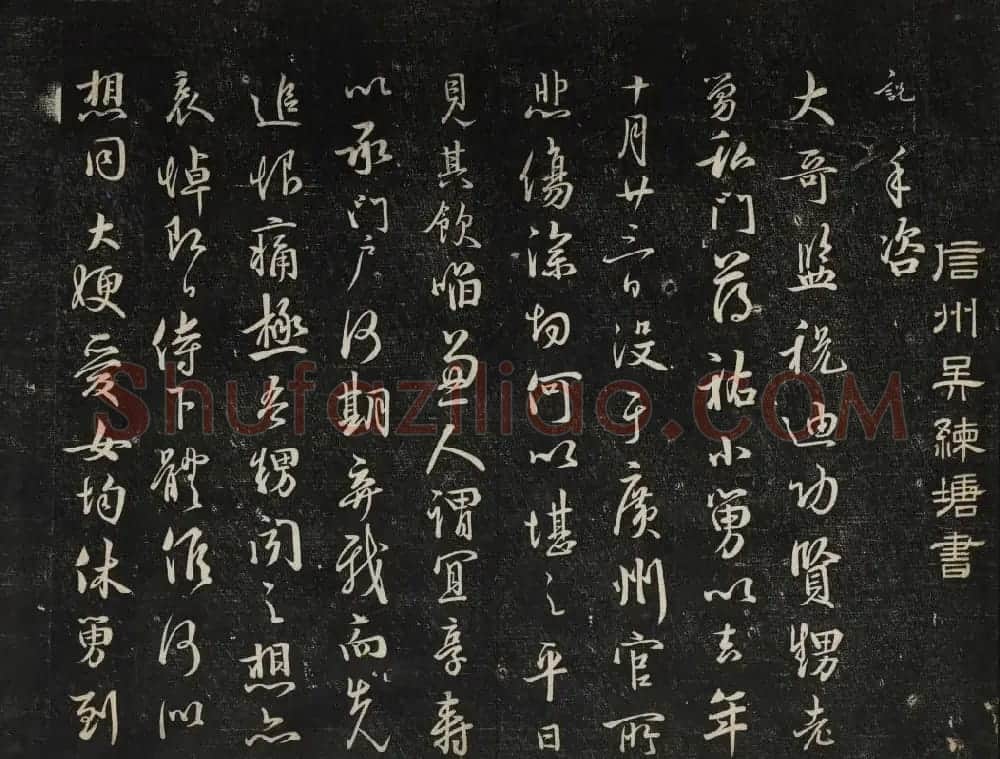 信州吴練塘書
說 手咨
大哥監稅迪功賢甥老
舅私門荐祐小舅以去年
十月廿三日没于廣州官所
悲傷深切何以堪之平日
見其飲啗兼人謂宜享壽
以承門户何期弃我而先
追恨痛極吾甥闻之想亦
哀悼即日侍下體候何似
想同大娌愛女均休舅到
Shufaziliao.COM